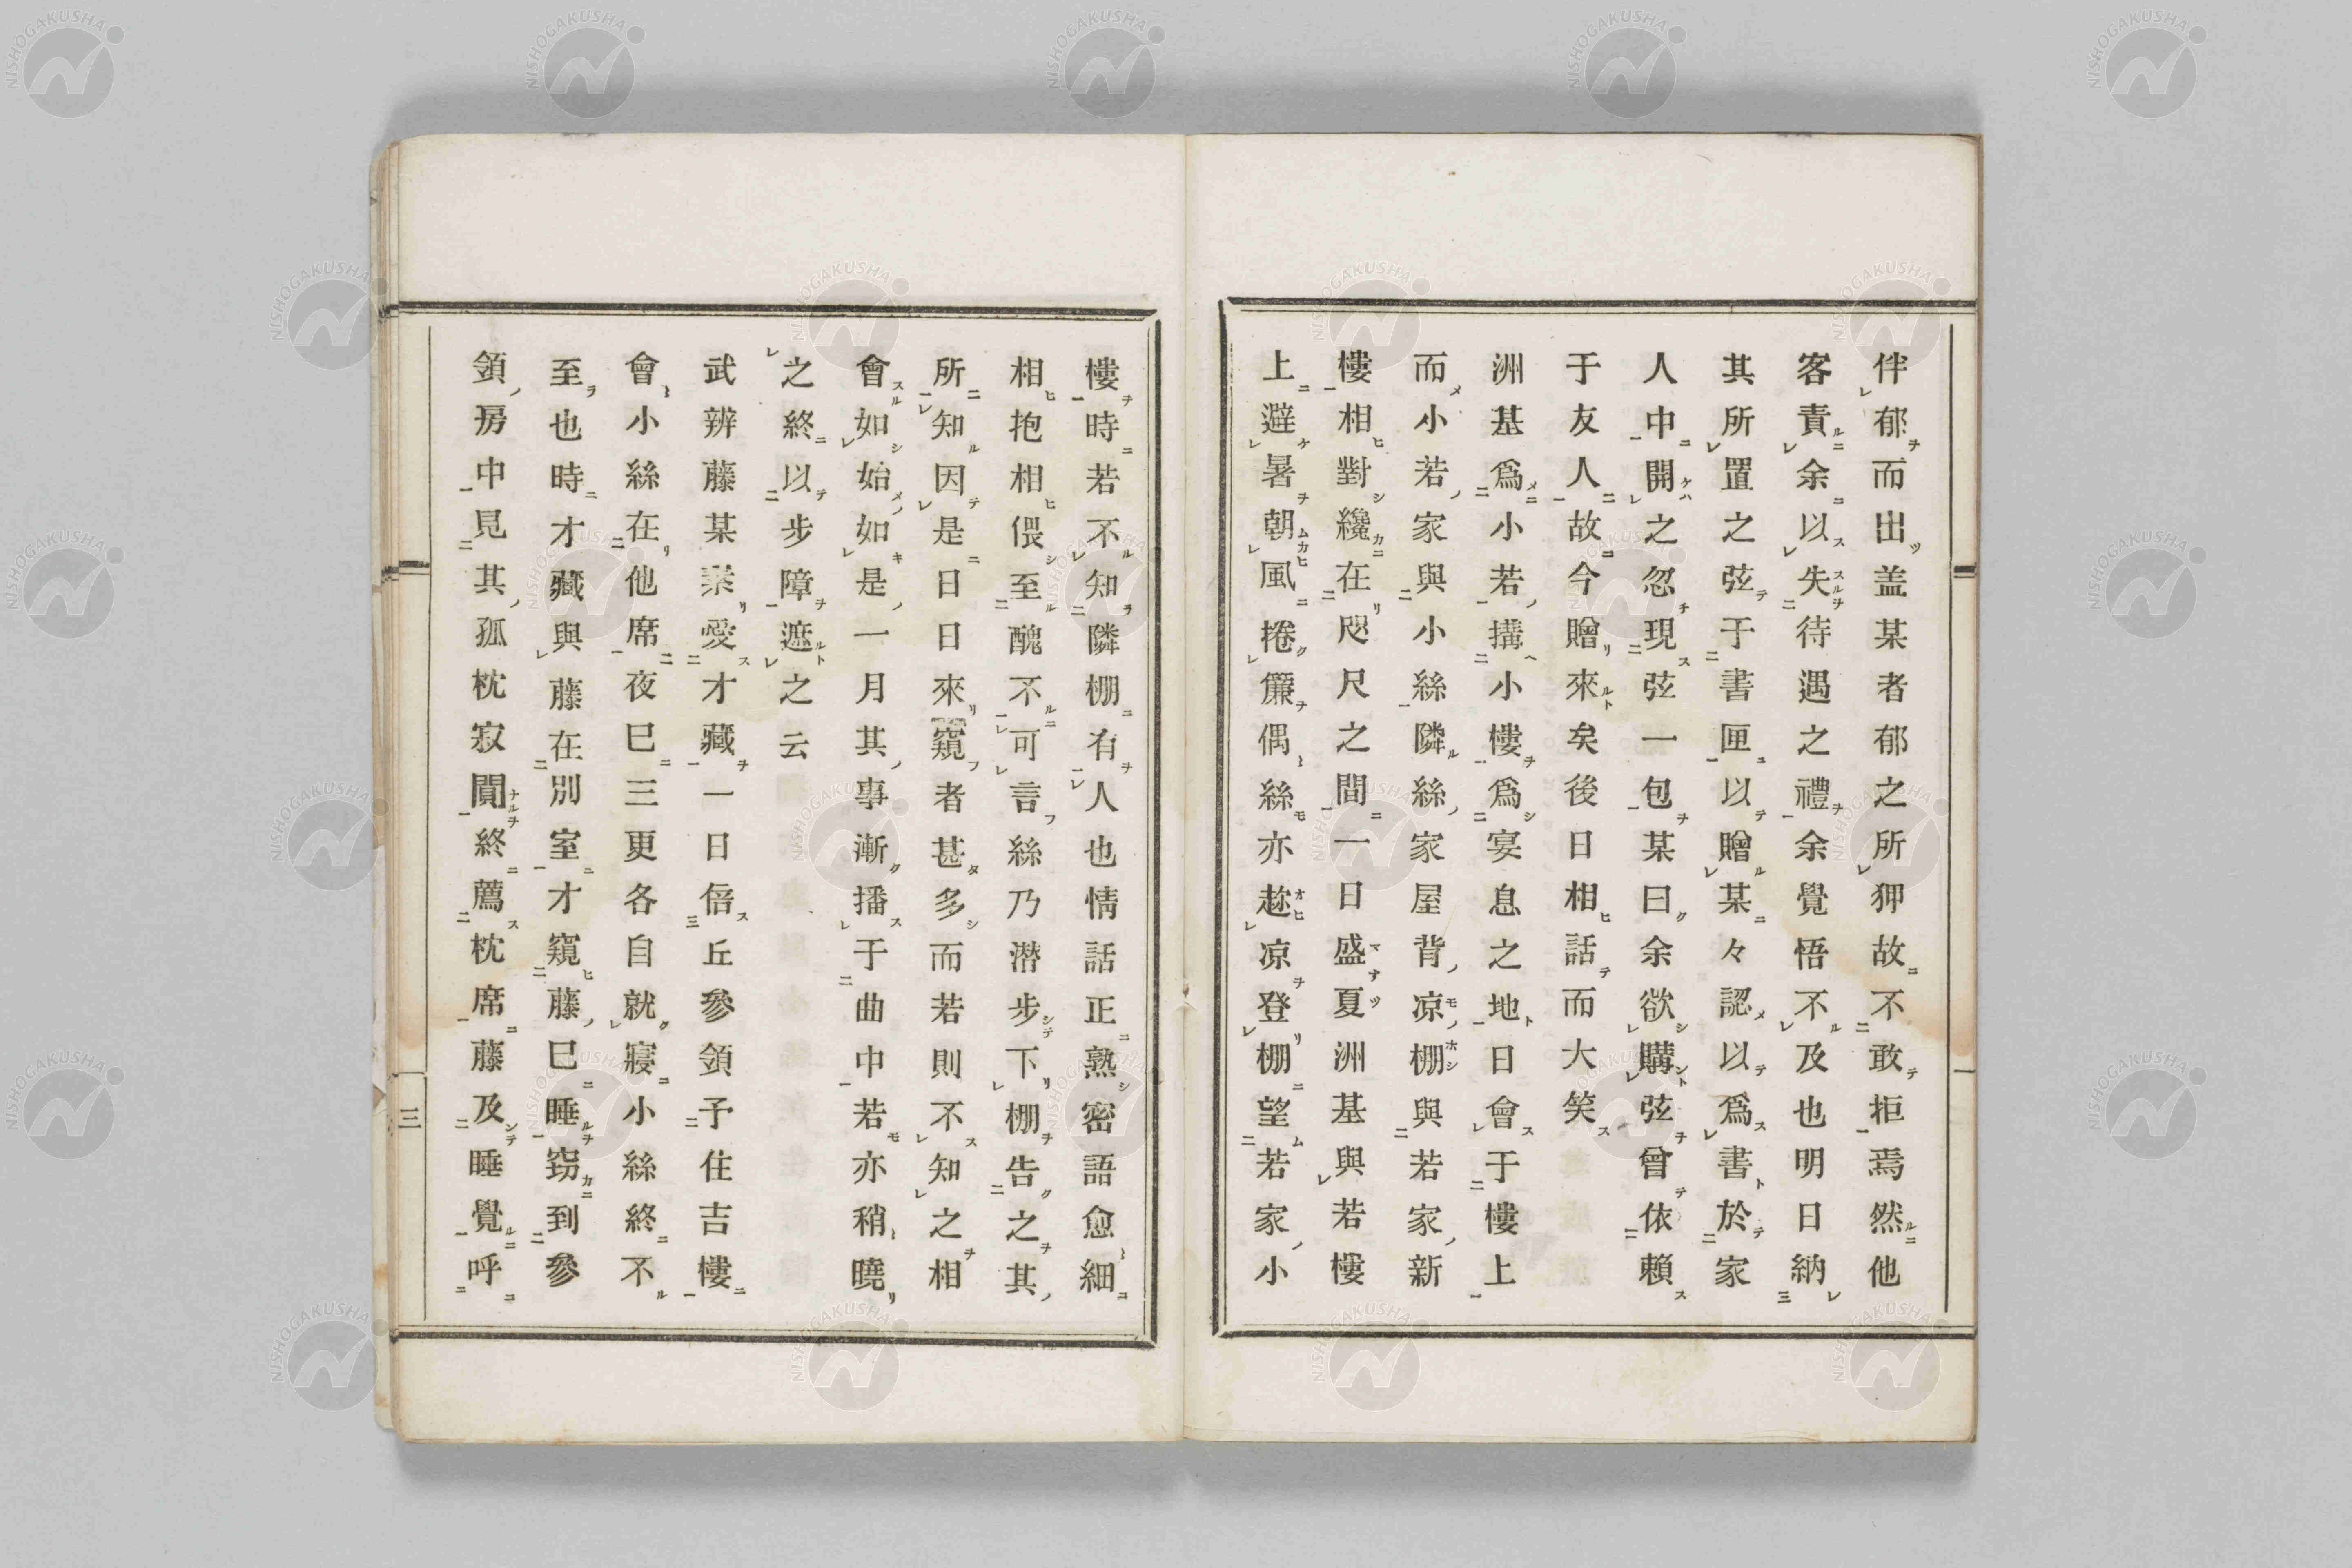 伴郁而出盖某者郁之所狎故不敢拒焉然他
客責余以失待遇之禮余覺悟不及也明日納
其所置之弦于書匣以贈某々認以爲書於家
人中開之忽現弦一包某曰余欲購弦曾依賴
于友人故今贈來矣後日相話而大笑
洲基爲小若搆小樓爲宴息之地日會于樓上
而小若家與小絲隣絲家屋背凉棚與若家新
樓相對纔在咫尺之間一日盛夏洲基與若樓
上避暑朝風捲簾偶絲亦趂凉登棚望若家小
樓時若不知隣棚有人也情話正熟密語愈細
相抱相偎至醜不可言絲乃潜步下棚告之其
所知因是日日來窺者甚多而若則不知之相
會如始如是一月其事漸播于曲中若亦稍曉
之終以步障遮之云
武辨藤某素愛才藏一日倍丘參領予住吉樓
會小絲在他席夜巳三更各自就寢小絲終不
至也時才藏與藤在別室才窺藤巳睡窃到參
領房中見其孤枕寂闃終薦枕席藤及睡覺呼
三
NISHOGAKUSHA